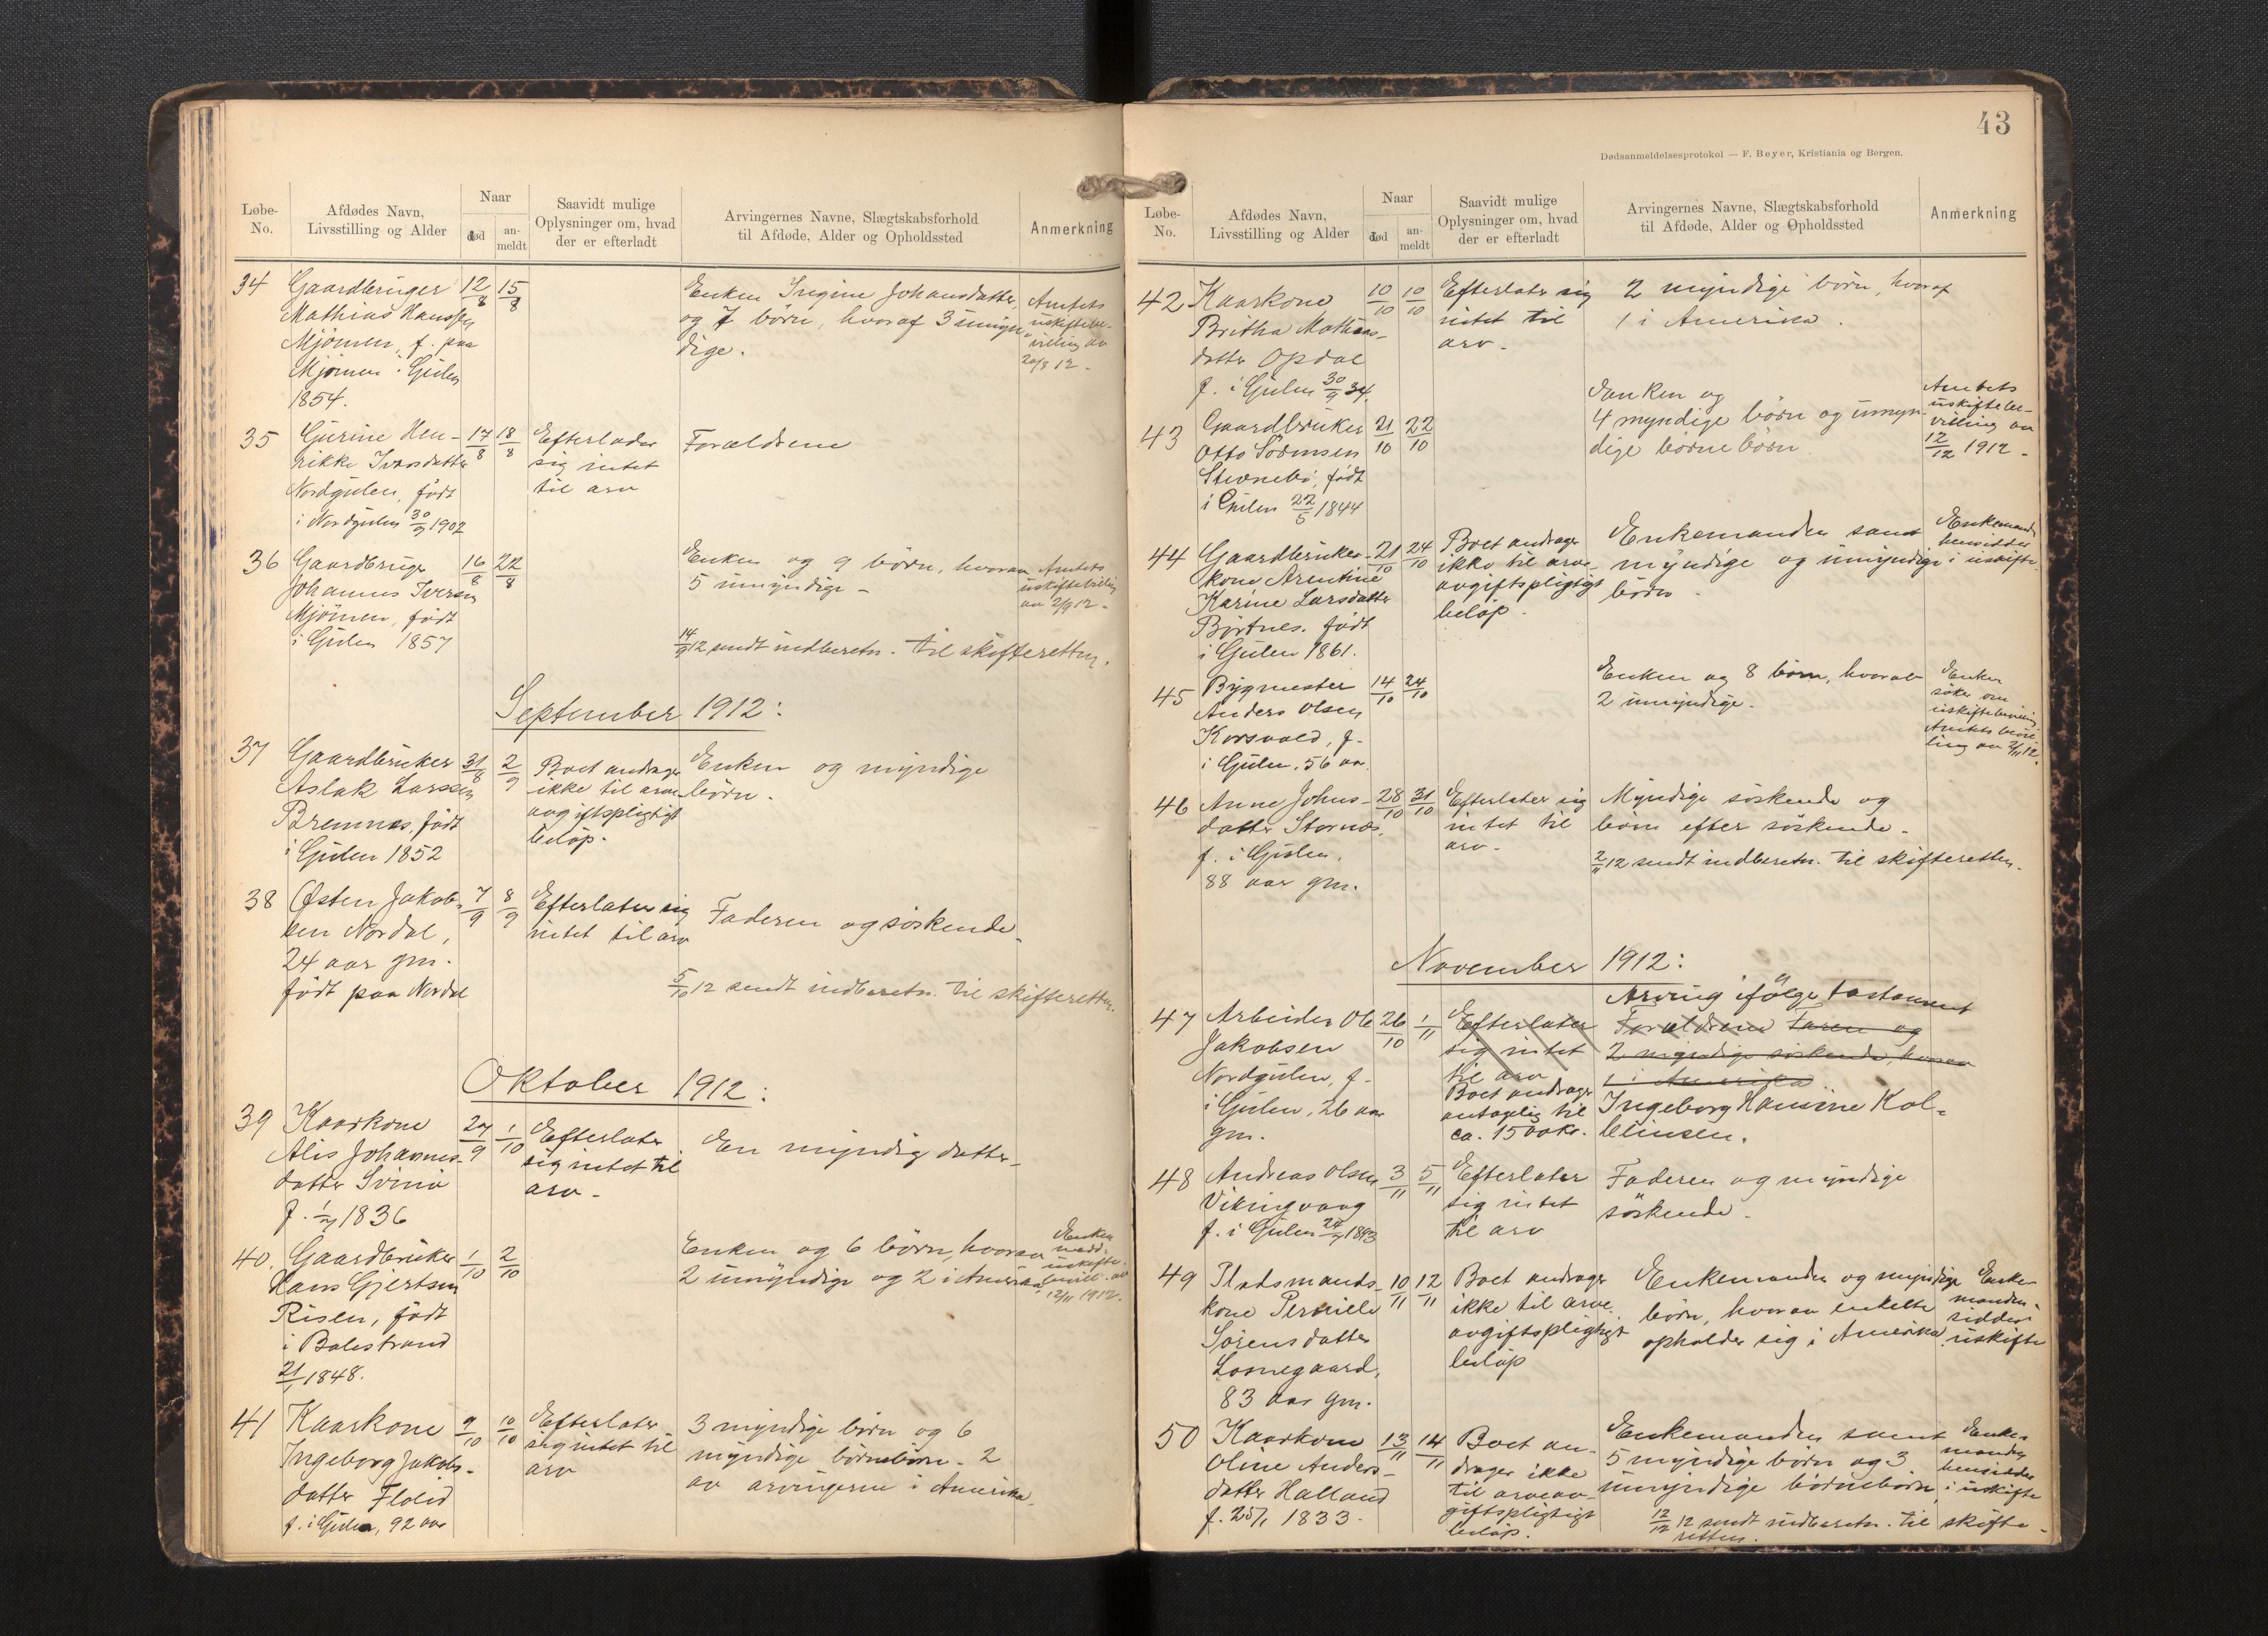 Løbe-No.
Afdødes Navn,
Livsstilling og Alder
Naar
død
an-meldt
Saavidt mulige
Oplysninger om, hvad
der er efterladt
Arvingernes Navne, Slægtskabsforhold
til Afdøde, Alder og Opholdssted
Anmerkning
34 Gaardbruger 12/8 15/8 Enken Ingine Johansdatter, Amtets
Mathias Hanssen og 7 børn, hvoraf 3 umyn- uskiftebe-
Mjømen, f. paa dige. villing av
Mjømen i Gulen 20/8 12.
1854.
35 Gurine Hen- 17/8 18/8 Efterlader Forældrene
rikke Ivarsdatter sig intet
Nordgulen, født til arv
i Nordgulen 30/9 1902
36 Gaardbruger 16/8 22/8 Enken og 9 børn, hvorav Amtets
Johannes Iversen 5 umyndige - uskiftebevilling
Mjømen, født av 2/9 12.
i Gulen 1857
14/9 12 sendt indberetn. til skifteretten.
September 1912:
37 Gaardbruker 31/8 2/9 Boet andrager Enken og myndige
Aslak Larssen ikke til arve- børn.
Bremnes, født avgiftspligtigt
i Gulen 1852 beløp.
38 Østen Jakob- 7/9 8/9 Efterlater sig Faderen og søskende.
sen Nordal, intet til arv
24 aar gm.
født paa Nordal
5/10 12 sendt indberetn. til skifteretten.
Oktober 1912:
39 Kaarkone 27/9 1/10 Efterlater En myndig datter.
Alis Johannes- sig intet til
datter Svinø arv.
f. 1836
40. Gaardbruker 1/10 2/10 Enken og 6 børn, hvorav Enken
Hans Gjertsen 2 umyndige og 2 i Amerika medd. uskifte-
Risen, født bevill. av
i Balestrand 12/11 1912.
21/1 1848.
41 Kaarkone 9/10 10/10 Efterlater 3 myndige børn og 6
Ingeborg Jakobs- sig intet til myndige børnebørn. 2
datter Flolid arv av arvingerne i Amerika.
f. i Gulen, 92 aar
43
Dødsanmeldelsesprotokol — F. Beyer, Kristiania og Bergen.
Løbe-No.
Afdødes Navn,
Livsstilling og Alder
Naar
død
an-meldt
Saavidt mulige
Oplysninger om, hvad
der er efterladt
Arvingernes Navne, Slægtskabsforhold
til Afdøde, Alder og Opholdssted
Anmerkning
42 Kaarkone 10/10 10/10 Efterlater sig 2 myndige børn, hvoraf
Britha Mathias- intet til 1 i Amerika.
datter Opdal arv.
f. i Gulen 30/9 34.
43 Gaardbruker 21/10 22/10 Enken og Amtets
Otto Sørensen 4 myndige børn og umyn- uskiftebe-
Stevnebø, født dige børnebørn villing av
i Gulen 22/5 1844 12/12 1912.
44 Gaardbruker- 21/10 24/10 Boet andrager Enkemanden samt Enkemand
kone Arentine ikke til arve- myndige og umyndige hensidder
Karine Larsdatter avgiftspligtigt børn. i uskifte.
Bjrtnes. født beløp.
i Gulen 1861.
45 Bygmester 14/10 24/10 Enken og 8 børn, hvorav Enken
Anders Olsen 2 umyndige. søker om
Korsvold, f. uskiftebevilling
i Gulen, 56 aar Amtets bevil-
ling av 12.
46 Anne Johns- 28/10 31/10 Efterlater sig Myndige søskende og
datter Stornæs, intet til børn efter søskende.
f. i Gulen, arv.
88 aar gm.
2/11 12 sendt indberetn. til skifteretten.
November 1912:
47 Arbeider Ole 26/10 1/11 Efterlater Arving ifølge testament
Jakobsen sig intet Forældrene Faren og
Nordgulen, f. til arv 2 myndige søskende, hvorav
i Gulen, 26 aar Boet andrager 1 i Amerika
gm. antagelig til Ingeborg Hansine Kol-
ca. 1500 kr. beinsen.
48 Andreas Olsen 3/11 5/11 Efterlater Faderen og myndige
Vikingvaag sig intet søskende.
f. i Gulen 1893 til arv
49 Pladsmands- 10/11 12/11 Boet andrager Enkemanden og myndige Enke-
kone Pernille ikke til arve- børn, hvorav enkelte manden
Sørensdatter avgiftspligtigt opholder sig i Amerika sidder i
Lornegaard, beløp uskifte
83 aar gm.
50 Kaarkone 13/11 14/11 Boet an- Enkemanden samt Enke-
Oline Anders- drager ikke 5 myndige børn og 3 manden
datter Halland til arveav- umyndige børnebørn, hensidder
f. 25/1 1833. giftspligtigt i uskifte
beløp. 12/12 12 sendt indberetn. til skifte-
retten.